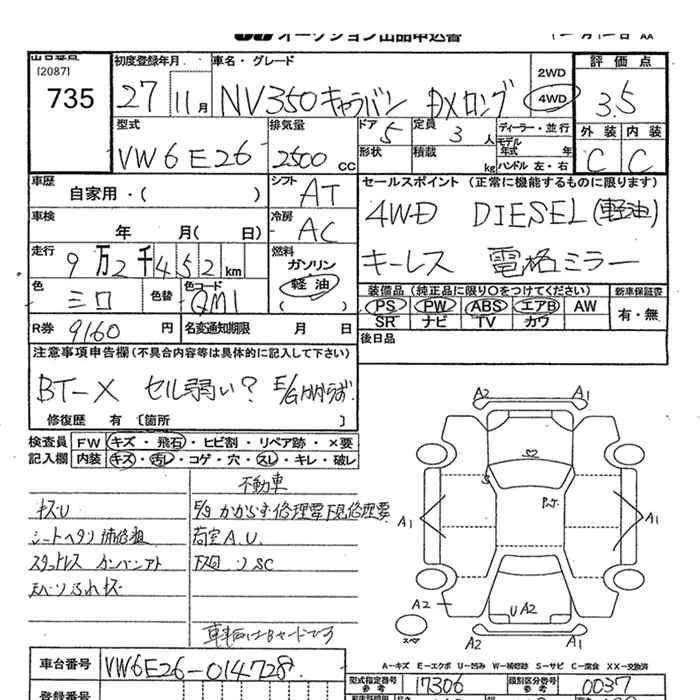 オークション出品申込書
[2087]
735
初度登録年月
27 11 月
車名・グレード
NV350キャラバン DXロング
2WD
4WD
評価点
3.5
外装 内装
C C
型式
VW6E26
排気量
2500 CC
ドア 5
形状
定員 3 人
積載 kg
ディーラー・並行
モデル年式 年
ハンドル 左・右
車歴
自家用・( )
シフト AT
セールスポイント (正常に機能するものに限ります)
4WD DIESEL(軽油)
キーレス 電格ミラー
車検 年 月( 日)
冷房 AC
走行 9万2千452 km
燃料
ガソリン
軽油
( )
色
シロ
色替
色コード
QM1
装備品 (純正品に限り〇をつけてください)
PS PW ABS エアB AW
SR ナビ TV カワ
新車保証書
有・無
R券 9160 円
名変通知期限 月 日
後日品
注意事項申告欄 (不具合内容等は具体的に記入して下さい)
BT-X セル弱い? E/Gかからず
修復歴 有 〔箇所 〕
検査員
記入欄
FW キズ・飛石・ヒビ割・リペア跡・×要
内装 キズ・汚レ・コゲ・穴・スレ・キレ・破レ
不動車
キズU
E/gかからず修理要 下見修理要
シートヘタリ 補修粗
荷室A.U.
スタットレス カンバンアト
下回りSC
車輌はBヤードです
A2 A1
P.t.
A1 A1
A2
UA2
A2 A1
スペア
A-キズ E-エクボ U-凹み W-補修跡 S-サビ C-腐食 XX-交換済
車台番号
VW6E26-014728
型式指定番号
参考
17306
類別区分番号
参考
0037
登録番号